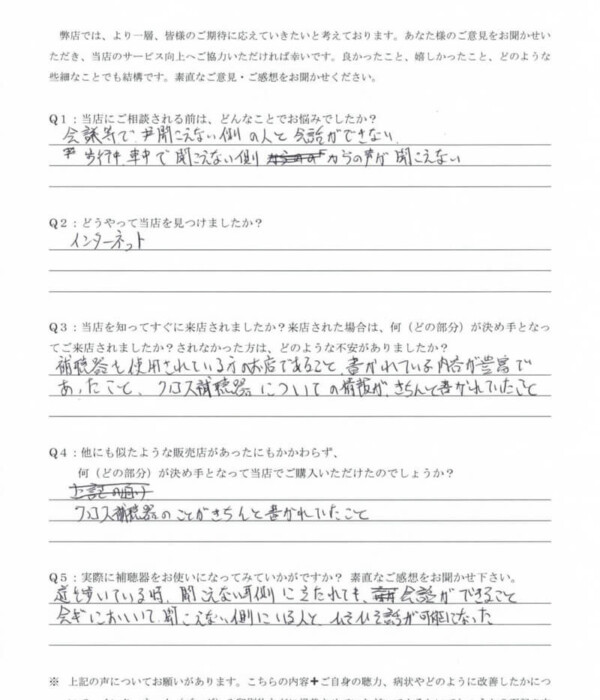 弊店では、より一層、皆様のご期待に応えていきたいと考えております。あなた様のご意見をお聞かせい
ただき、当店のサービス向上へご協力いただければ幸いです。良かったこと、嬉しかったこと、どのような
些細なことでも結構です。素直なご意見・ご感想をお聞かせください。
Q1：当店にご相談される前は、どんなことでお悩みでしたか？
会議等で、聞こえない側の人と会話ができない
歩行中、車中で聞こえない側からの声が聞こえない
Q2：どうやって当店を見つけましたか？
インターネット
Q3：当店を知ってすぐに来店されましたか？来店された場合は、何（どの部分）が決め手となっ
てご来店されましたか？されなかった方は、どのような不安がありましたか？
補聴器も使用されている方のお店であること、書かれている内容が豊富で
あったこと、クロス補聴器についての情報が、きちんと書かれていたこと
Q4：他にも似たような販売店があったにもかかわらず、
何（どの部分）が決め手となって当店でご購入いただけたのでしょうか？
クロス補聴器のことがきちんと書かれていたこと
Q5：実際に補聴器をお使いになってみていかがですか？ 素直なご感想をお聞かせ下さい。
道を歩いている時、聞こえない耳側に立たれても、会話ができること
会議において、聞こえない側にいる人と、ひそひそ話が可能になった
※ 上記の声についてお願いがあります。こちらの内容＋ご自身の聴力、病状やどのように改善したかにつ